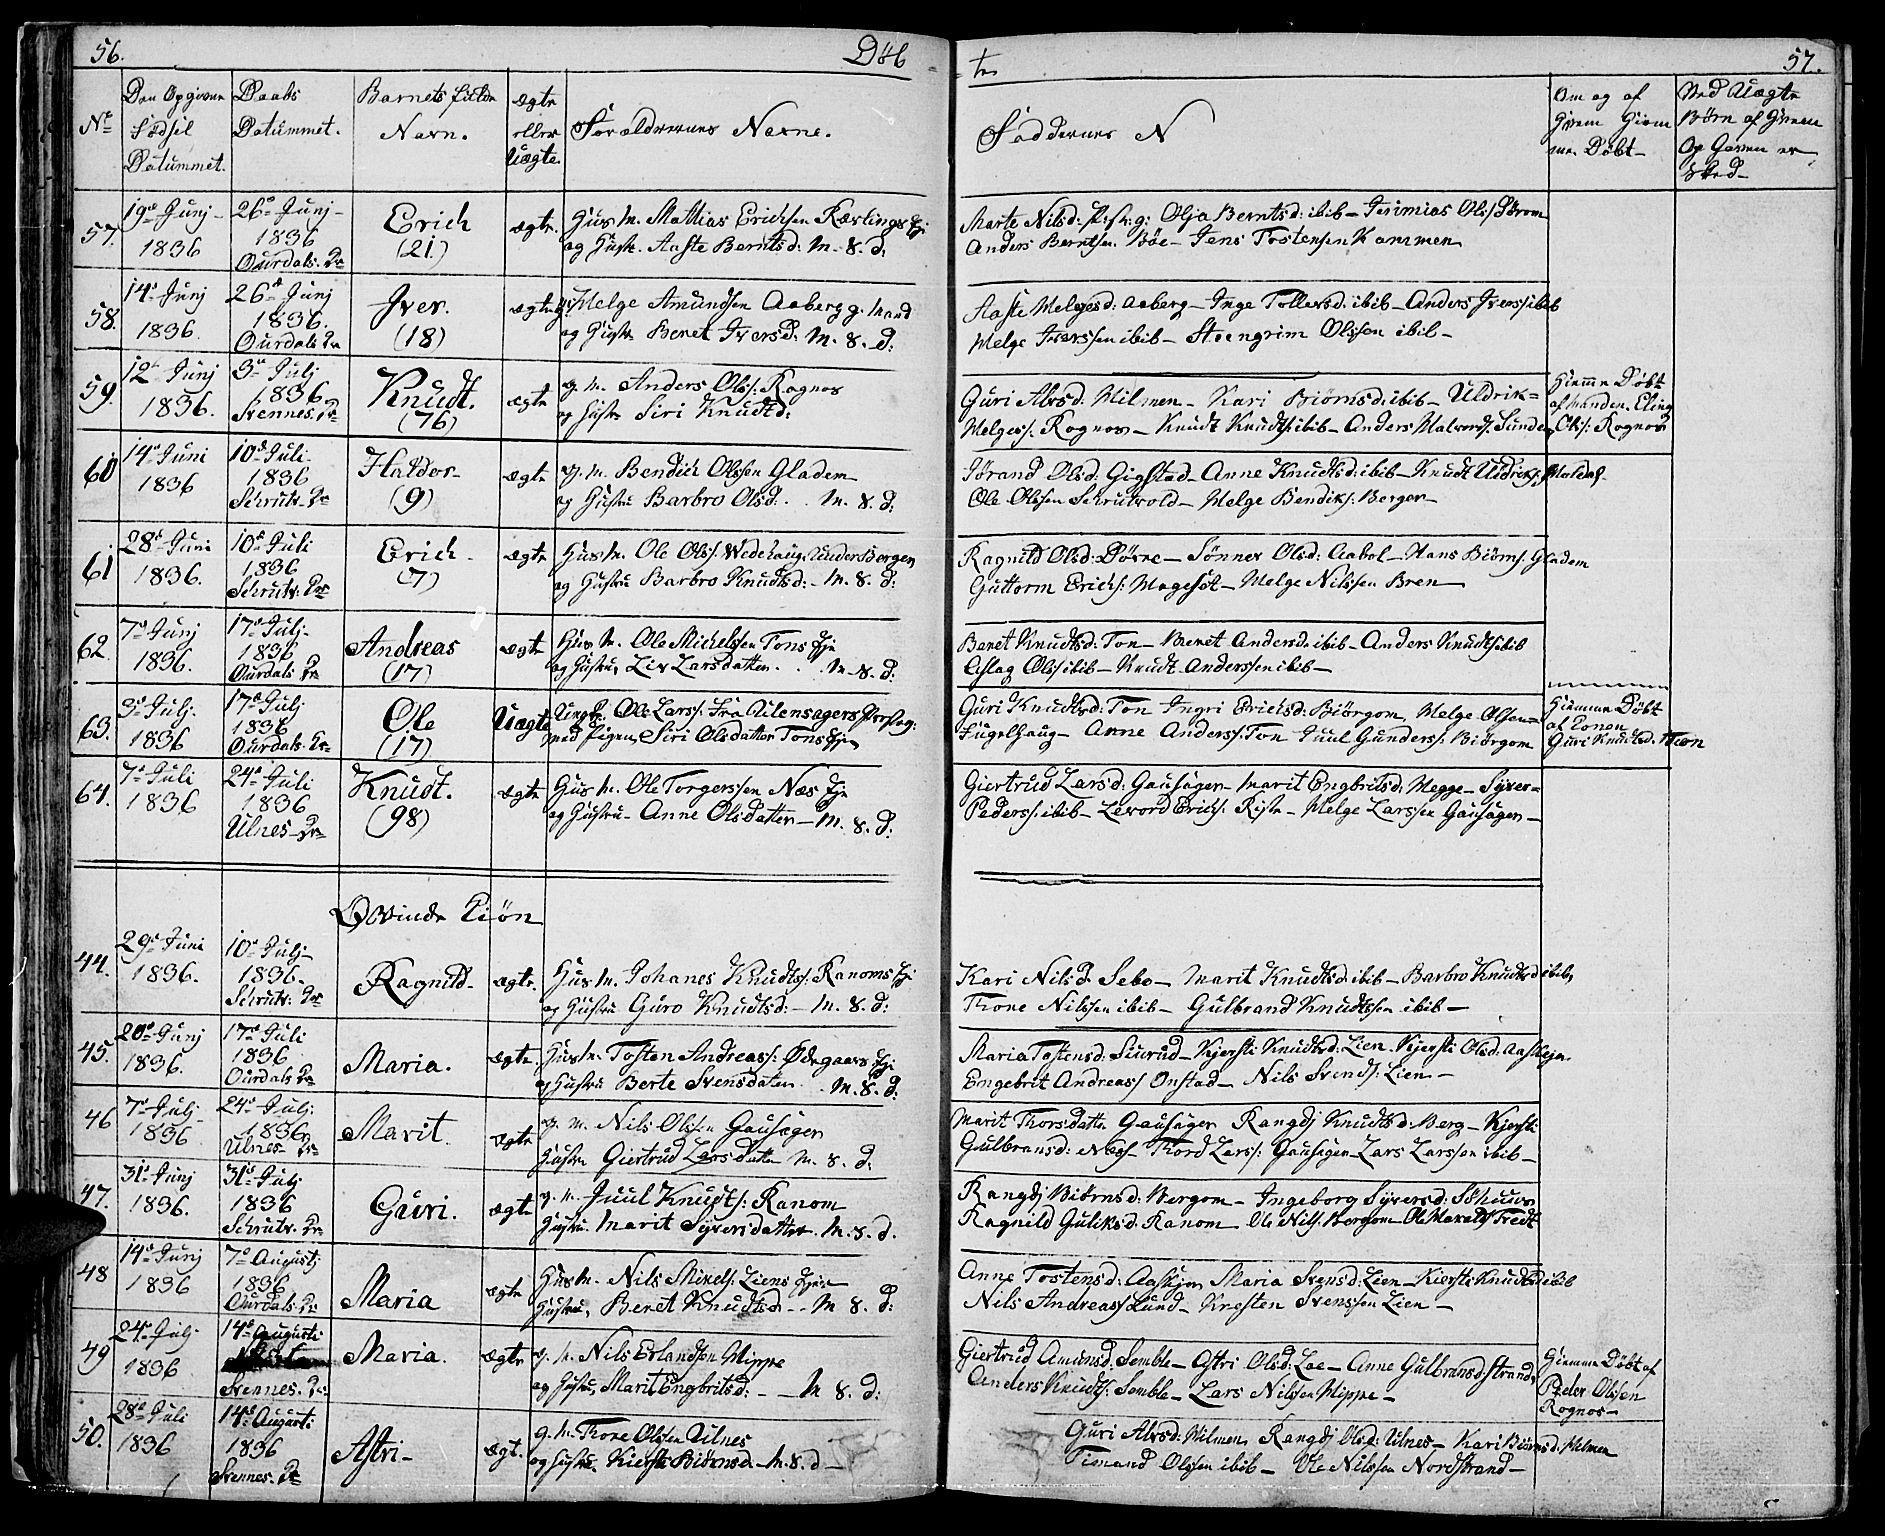 56.
Døb
=te
57.
No
Den Opgivne
Fødsil
Datummet.
Daabs
Datummet.
Barnets fulde
Navn.
Ægte
eller
Uægte.
Forældrernes Navne.
Faddernes N
Om og af
Hvem Hiem
me Døbt
Ved Uægte
Børn af Hvem
Op Gaven er
Sked
57.
19de Junj
1836
26de Junj
1836
Ourdals. Ke
Erich
(21)
ægte
Huus M. Mattias Erichsen Kærlings Eje
og Hustr. Aaste Berntsd: M. 8. d:
Marte Nilsd: Olja Berntsd: ibib Jerimias Ols
Anders Berntsen Bøe Jens Tostensen Kammen
58.
14de Junj
1836.
26de Junj
1836.
Ourdals Ke
Iver.
(18)
ægte
Helge Amundsen Aaberg g. Mand
og Hustr Beret Iversd: M. 8. d:
Aaste Helgesd: Aaberg Inge Tollevsd: ibib Anders Iverss ibib
Helge Iverssen ibib Steengrim Olssen ibil
59.
12te Junj
1836.
3de Julj
1836
Svennes. Ke
Knudt.
(76)
ægte
g. M. Anders Ols: Rognos
og Hustr Siri Knudtd:
Guri Alvsd: Hilmen Kari Biørnsd: ibib Uldrik=
Helges: Rognos Knudt Knudts: ibib Anders Halvords: Sunde
Hiemme Døbt
af Manden Eling
Ols: Rognos
60
14de Juni
1836
10de Juli
1836
Schrutv. Ke
Haldor
(9)
ægte
g. M. Bendich Olssen Gladem
og Hustru Barbro Olsd: M. 8. d:
Jørand Olsd: Gigstad Anne Knudtsd: ibib Knudt Uldriks:
Ole Olssen Schrutvold Helge Bendiks: Berger
61
28de Juni
1836.
10de Juli
1836
Schrutv: Ke
Erich
(7)
ægte
Huus M. Ole Ols: Wedehaug Under Bergen
og Hustru Barbro Knudtsd: M. 8. d:
Ragnild Olsd: Dørre Sønner Olsd: Aabol Hans Biørns: Gladem
Guttorm Erichs: Magesøt Helge Nilssen Bren
62
7de Junj
1836.
17de Julj
1836
Ourdals Ke
Andreas
(17)
ægte
Huus M. Ole Michelsen Tons Eje
og Hustru Liv Larsdatter M. 8. d:
Beret Knudtsd: Ton Beret Andersd: ibib Anders Knudts ibib
Aslag Ols: ibib Knudt Anderssen ibib
63.
3de Julj.
1836
17de Julj
1836
Ourdals. Ke
Ole
(17)
Uægte
Ungk. Ole Lars: Fra Præsteg:
med Pigen Siri Olsdatter Tons Eje
Guri Knudtsd: Ton Ingri Erichsd: Biørgom Helge Olssen
Fugelhaug Anne Anders: Ton Juul Gunders: Biørgom
Hiemme Døbt
af Konen
Guri Knudtsd: Ton
64.
7de Juli
1836
24de Juli
1836
Ulnes Ke
Knudt.
(98)
ægte
Huus M. Ole Torgerssen Næs Eje
og Hustru Anne Olsdatter M. 8. d:
Giertrud Larsd: Gausager Marit Engbritsd: Megge Syver=
Peders: ibib Levord Erichs: Riste Helge Larssen Gausager
Qvinde Kiøn
44.
29de Juni
1836.
10de Julj
1836.
Schrutv: Ke
Ragnild
ægte
Huus M. Johanes Knudts: Ranoms Eje
og Hustru Guro Knudtsd: M. 8. d:
Kari Nilsd: Sebo Marit Knudtsd: ibib Barbro Knudtsd: ibib
Trone Nilssen ibib Gulbrand Knudtssen ibib
45.
20de Junj
1836.
17de Juli
1836
Ourdals Ke
Maria.
ægte
Huus M. Tosten Andreas: Ødegaars Eje
og Hustru Berte Svensdaten. M. 8. d:
Maria Tostensd: Sinrud Kjersti Knudtsd: Lien Kjersti Olsd: Aaskejen
Engebrit Andreas: Onstad Nils Svends: Lien
46
7de Julj
1836
24de Julj.
1836
Ulnes Ke
Marit.
ægte
g. M. Nils Olssen Gausager
Hustru Giertrud Larsdatter M. 8. d:
Marit Thorsdatter Gausager Rangdj Knudtsd: Berg Kjersti
Gulbransd: Nes Thord Lars: Gausager Lars Larssen ibib
47.
31te Junj
1836.
31te Julj
1836
Schrutv. Ke
Guri.
ægte
g. M. Juul Knudts: Ranom
Hustru Marit Syversdatter. M. 8. d.
Rangdj Biørnsd: Bergom Ingeborg Syversd:
Ragnild Guliksd: Ranom Ole Nils: Bergom Ole
48
14de Junj
1836
7de Augustj
1836
Ourdals. Ke
Maria
ægte
Huus M. Nils Mikels: Liens Eje
Hustru Beret Knudtsd M. 8. d:
Anne Tostensd: Aaskjen Maria Svensd: Lien Kiersti Knudtsd ibib
Nils Andreas: Lund Kresten Svenssen Lien
49
24de Julj
1836
14de Augusti
Svennes. Ke
Maria.
ægte
g. M. Nils Erlandsen Hippe
og Hustru Marit Engbritsd: M 8. d:
Giertrud Amunsd: Semble Astri Olsd: Loe Anne Gulbransd: Strande
Anders Knudts: Semble Lars Nilssen Hippe
Hiemme Døbt af
Peder Olssen
Rognos
50.
28de Juli
1836
14de Augusti
1836
Svennes. Ke
Astri
ægt.
g. M. Thore Olssen Ulnes
og Hustru Kiersti Biørnsd. M. 8. d
Guri Alvsd: Hilmen Rangdj Olsd: Ulnes Kari Biørnsd: Hilmen
Timand Olssen ibib Ole Nilssen Nordstrand